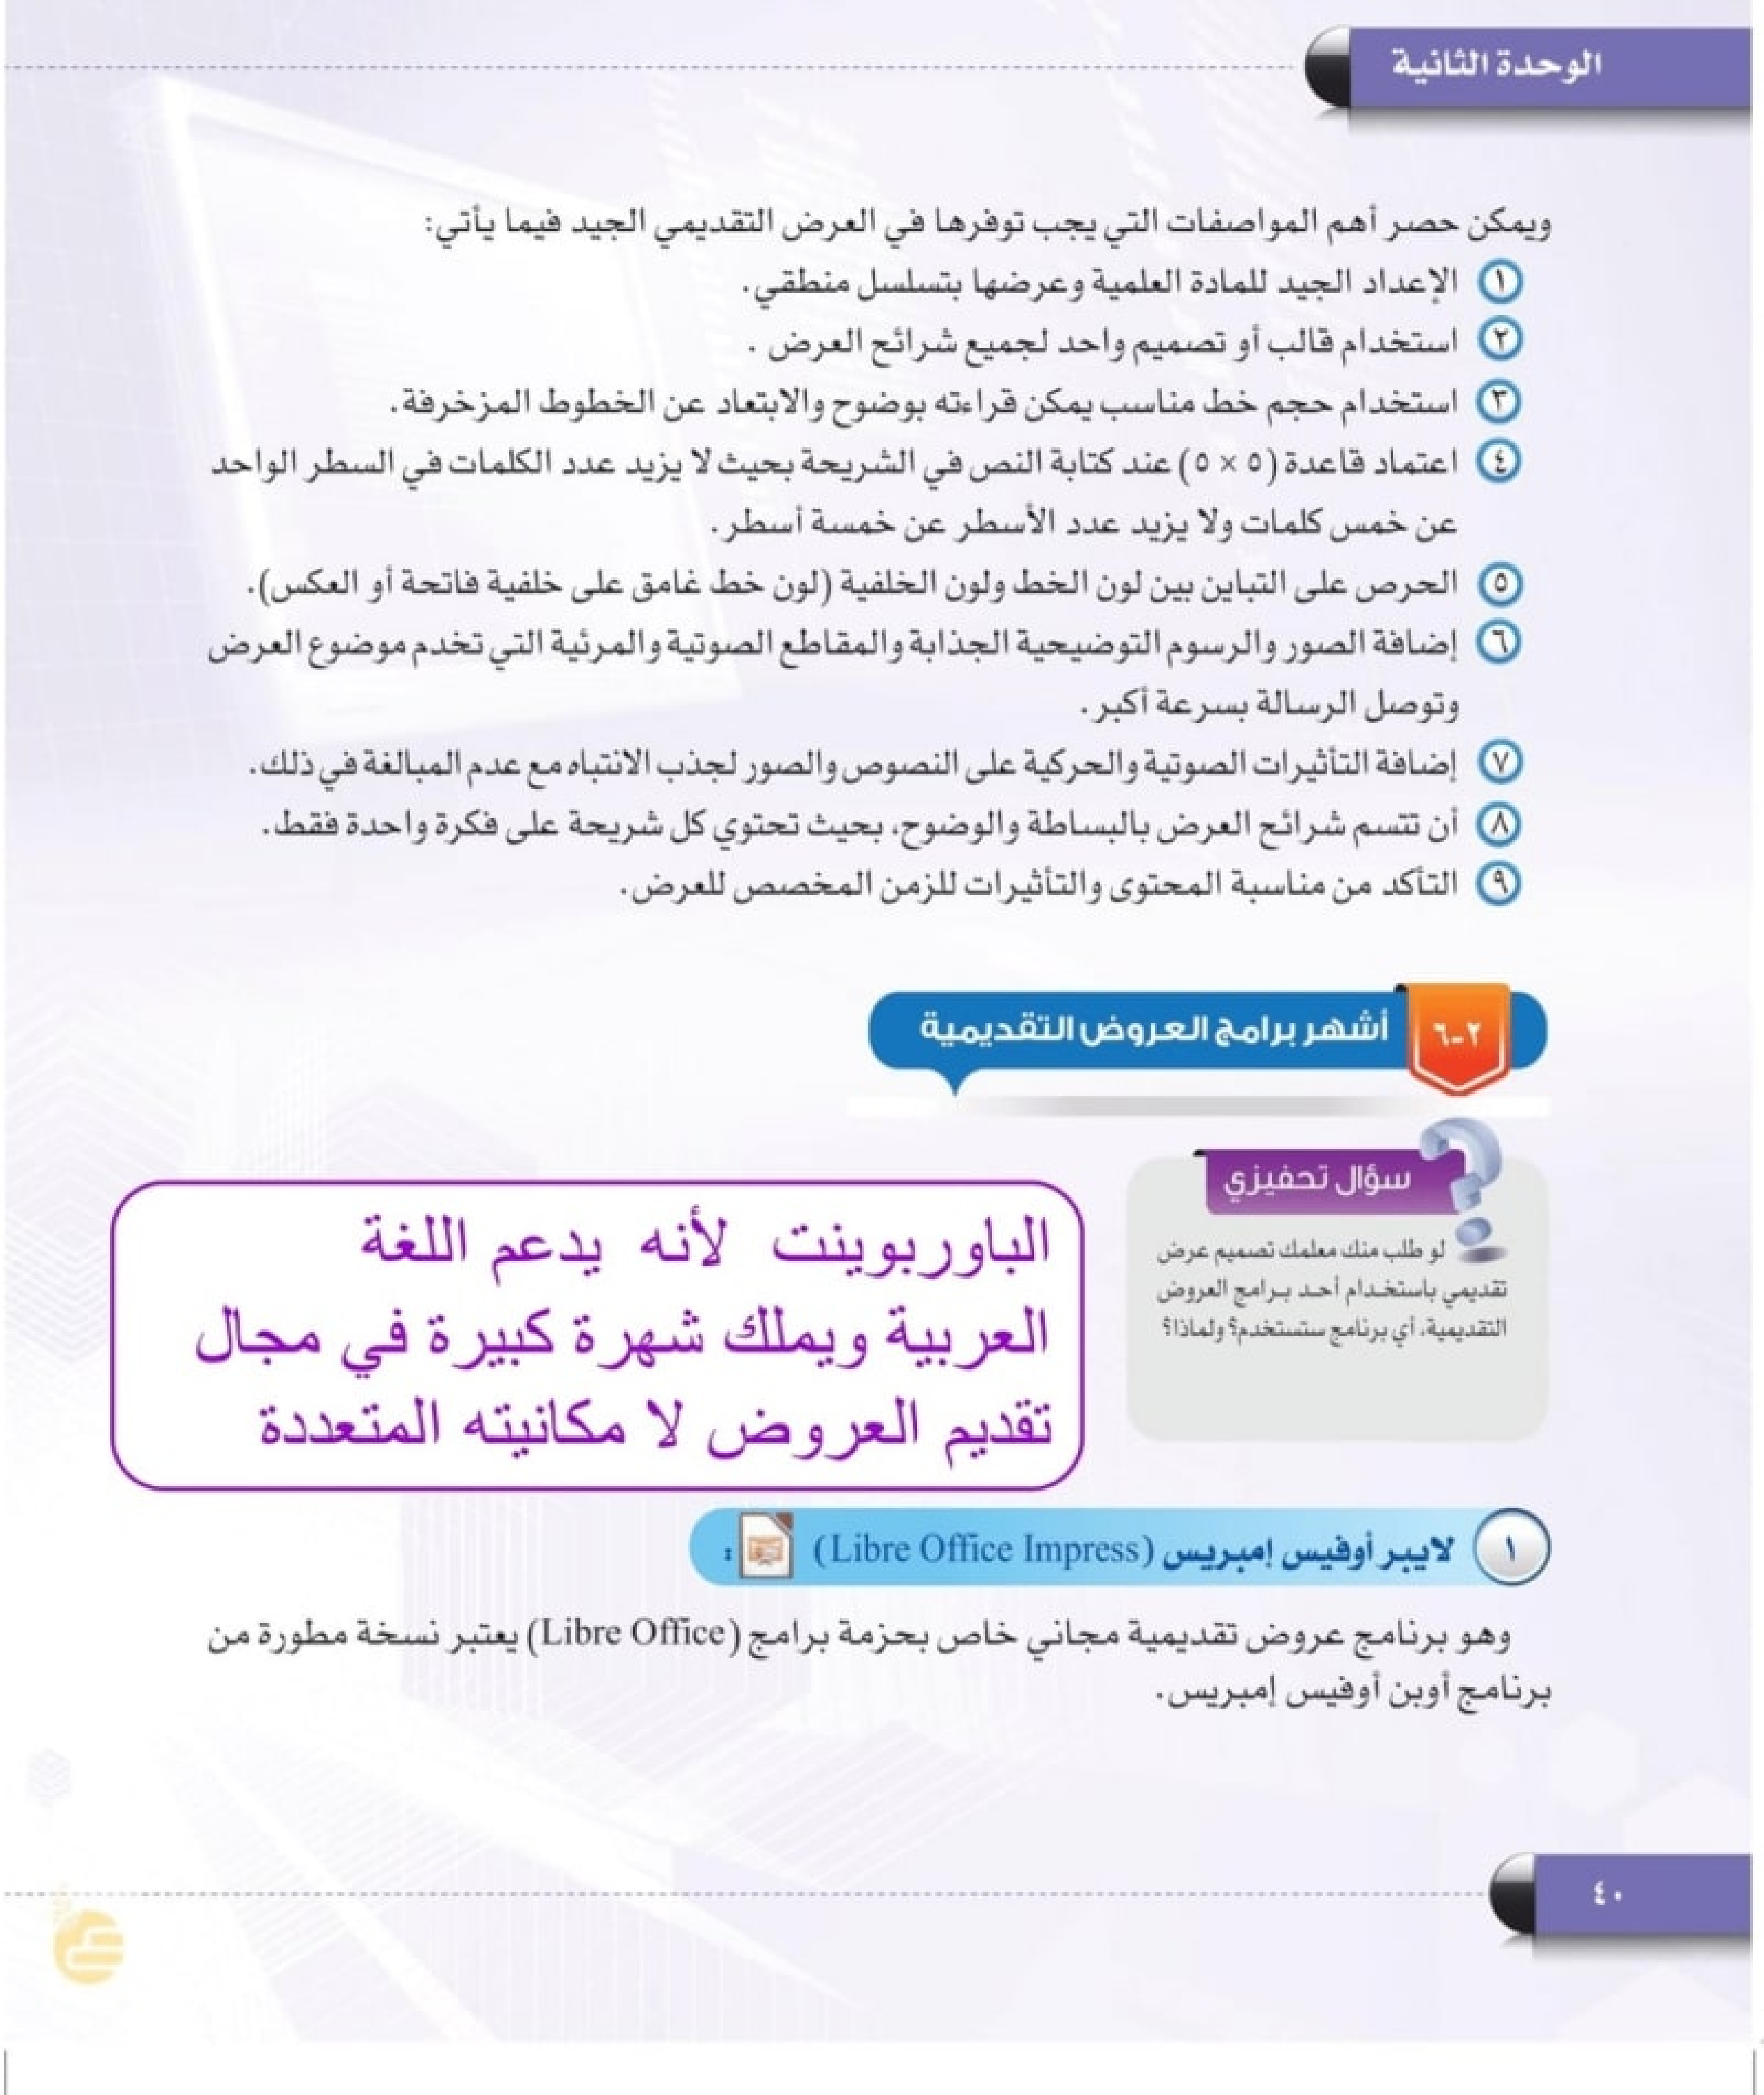 الوحدة الثانية
ويمكن حصر أهم المواصفات التي يجب توفرها في العرض التقديمي الجيد فيما يأتي:
١ الإعداد الجيد للمادة العلمية وعرضها بتسلسل منطقي.
٢ استخدام قالب أو تصميم واحد لجميع شرائح العرض .
٣ استخدام حجم خط مناسب يمكن قراءته بوضوح والابتعاد عن الخطوط المزخرفة.
٤ اعتماد قاعدة (٥ × ٥) عند كتابة النص في الشريحة بحيث لا يزيد عدد الكلمات في السطر الواحد
عن خمس كلمات ولا يزيد عدد الأسطر عن خمسة أسطر.
٥ الحرص على التباين بين لون الخط ولون الخلفية (لون خط غامق على خلفية فاتحة أو العكس).
٦ إضافة الصور والرسوم التوضيحية الجذابة والمقاطع الصوتية والمرئية التي تخدم موضوع العرض
وتوصل الرسالة بسرعة أكبر.
٧ إضافة التأثيرات الصوتية والحركية على النصوص والصور لجذب الانتباه مع عدم المبالغة في ذلك.
٨ أن تتسم شرائح العرض بالبساطة والوضوح، بحيث تحتوي كل شريحة على فكرة واحدة فقط.
٩ التأكد من مناسبة المحتوى والتأثيرات للزمن المخصص للعرض.
٢-٦ أشهر برامج العروض التقديمية
سؤال تحفيزي
لو طلب منك معلمك تصميم عرض
تقديمي باستخدام أحد برامج العروض
التقديمية، أي برنامج ستستخدم؟ ولماذا؟
الباوربوينت لأنه يدعم اللغة
العربية ويملك شهرة كبيرة في مجال
تقديم العروض لا مكانيته المتعددة
١ لايبر أوفيس إمبريس (Libre Office Impress) :
وهو برنامج عروض تقديمية مجاني خاص بحزمة برامج (Libre Office) يعتبر نسخة مطورة من
برنامج أوبن أوفيس إمبريس.
٤٠